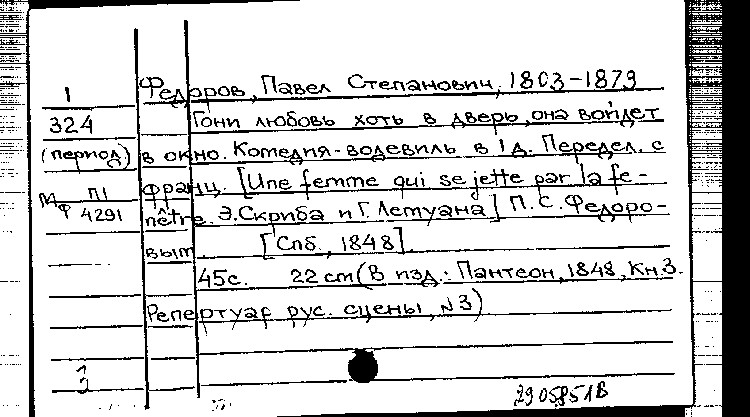 1 Федоров, Павел Степанович, 1803-1879
324 Гони любовь хоть в дверь, она войдет
(период) в окно. Комедия-водевиль в 1 д. Передел. с
МФ П1 4291 франц. [Une femme qui se jette par la fe-
nêtre. Э. Скриба и Г. Лемуана] П.С. Федоро-
вым. [Спб., 1848].
45с. 22 cm (В изд.: Пантеон, 1848, Кн.3.
Репертуар рус. сцены, №3)